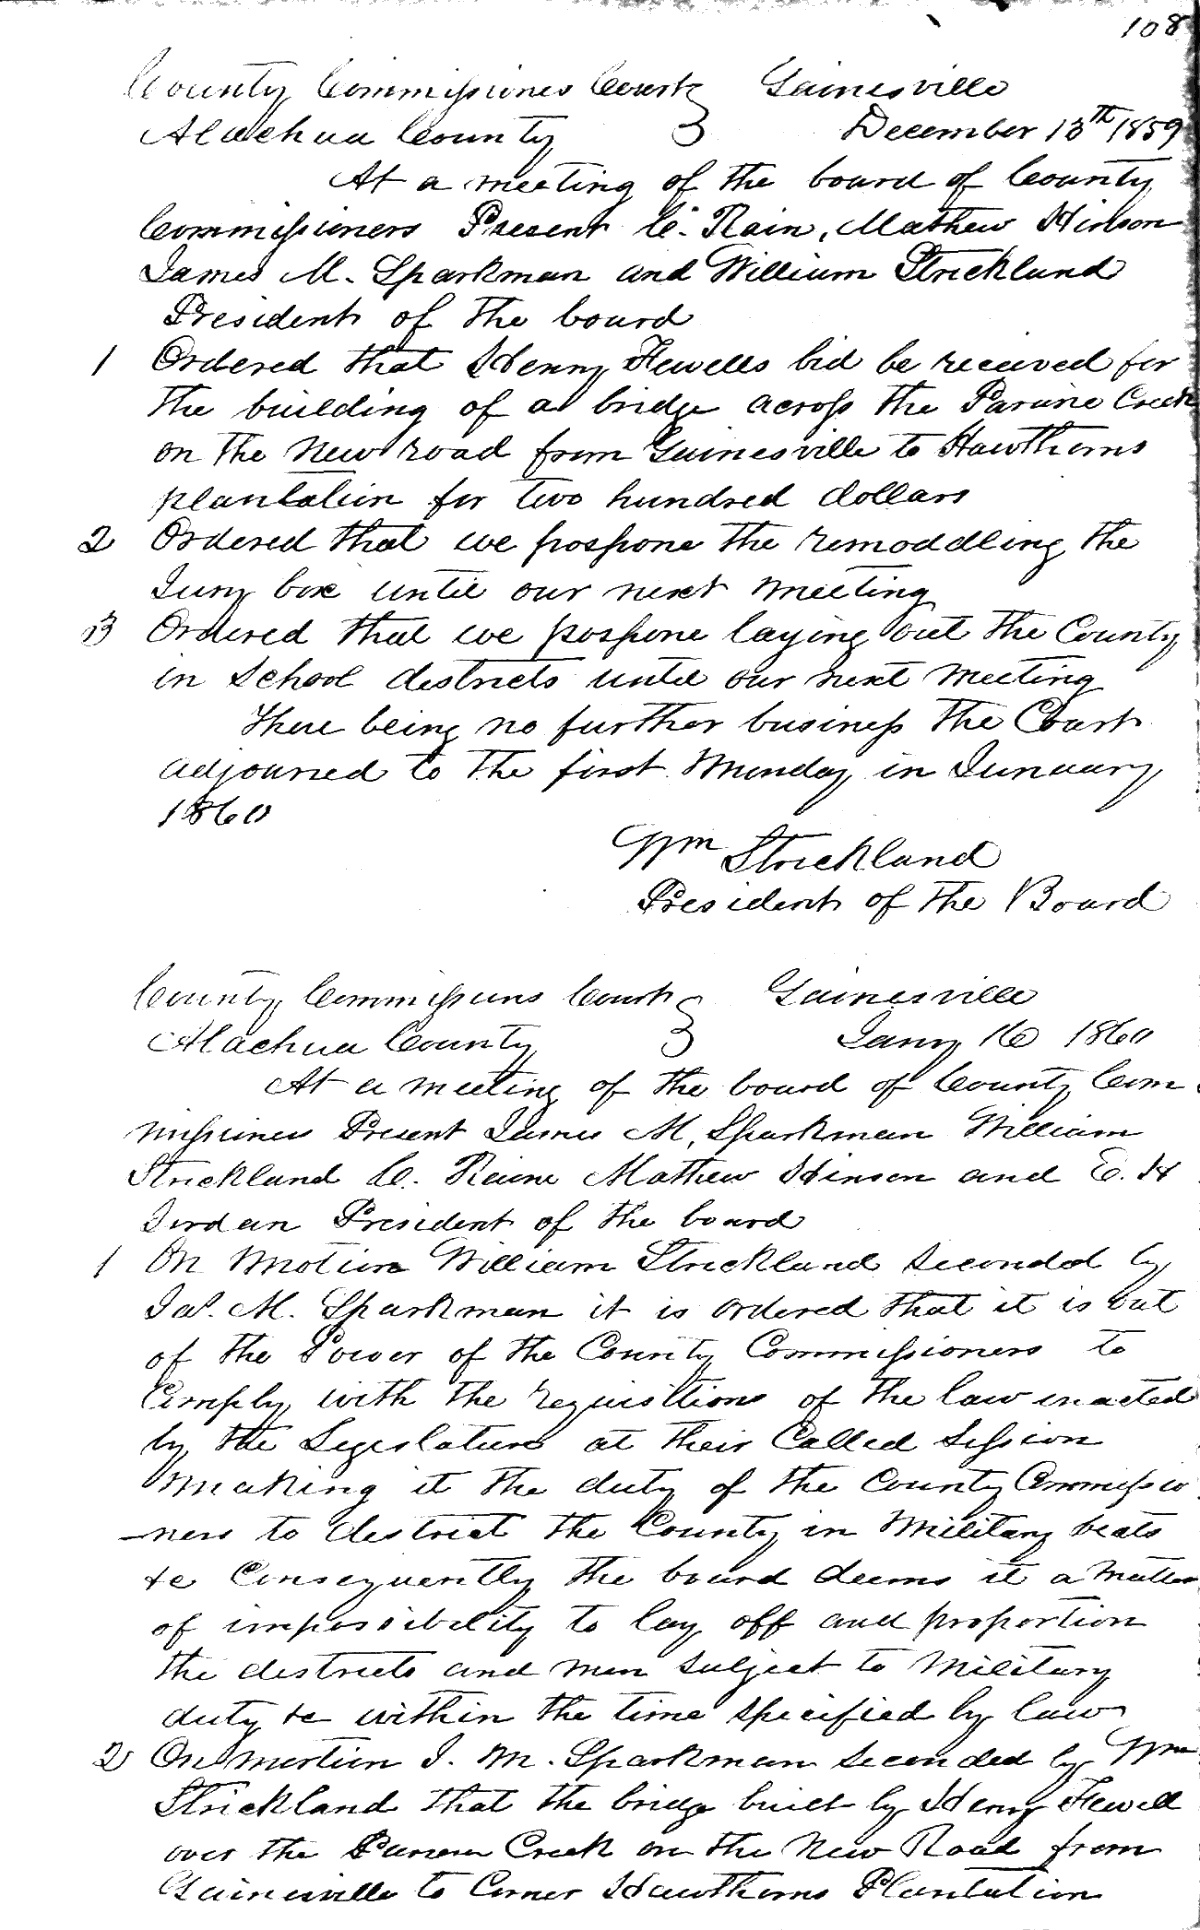 108
County Commissiones Court } Gainesville
Alachua County } December 13th 1859
At a meeting of the board of County
Commissioners Present C. Rain, Mathew Hinson
James M. Sparkman and William Strickland
President of the board
1 Ordered that Henry Fewells bid be received for
the building of a bridge across the Parane Creek
on the New road from Gainesville to Hawthorns
plantation for two hundred dollars
2 Ordered that we pospone the remoddling the
Jury box until our next meeting
3 Ordered that we pospone laying out the County
in School districts until our next meeting
There being no further business the Court
adjourned to the first Monday in January
1860
Wm Strickland
President of the Board
County Commissiones Court } Gainesville
Alachua County } Jany 16 1860
At a meeting of the board of County Com
missiones Present James M. Sparkman William
Strickland C. Raine Mathew Hinson and E. H
Jordan President of the board
1 On Motion William Strickland Seconded by
Jas. M. Sparkman it is ordered that it is out
of the Power of the County Commissioners to
Comply with the requisitions of the law enacted
by the Legislature at their Called Session
making it the duty of the County Commissio
-ners to district the County in Military beats
&c Consequently the board deems it a matter
of impossibility to lay off and proportion
the districts and men subject to Military
duty &c within the time specified by law
2 On motion J. M. Sparkman seconded by Wm
Strickland that the bridge built by Henry Fewell
over the Creek on the New Road from
Gainesville to Corner Hawthorns Plantation